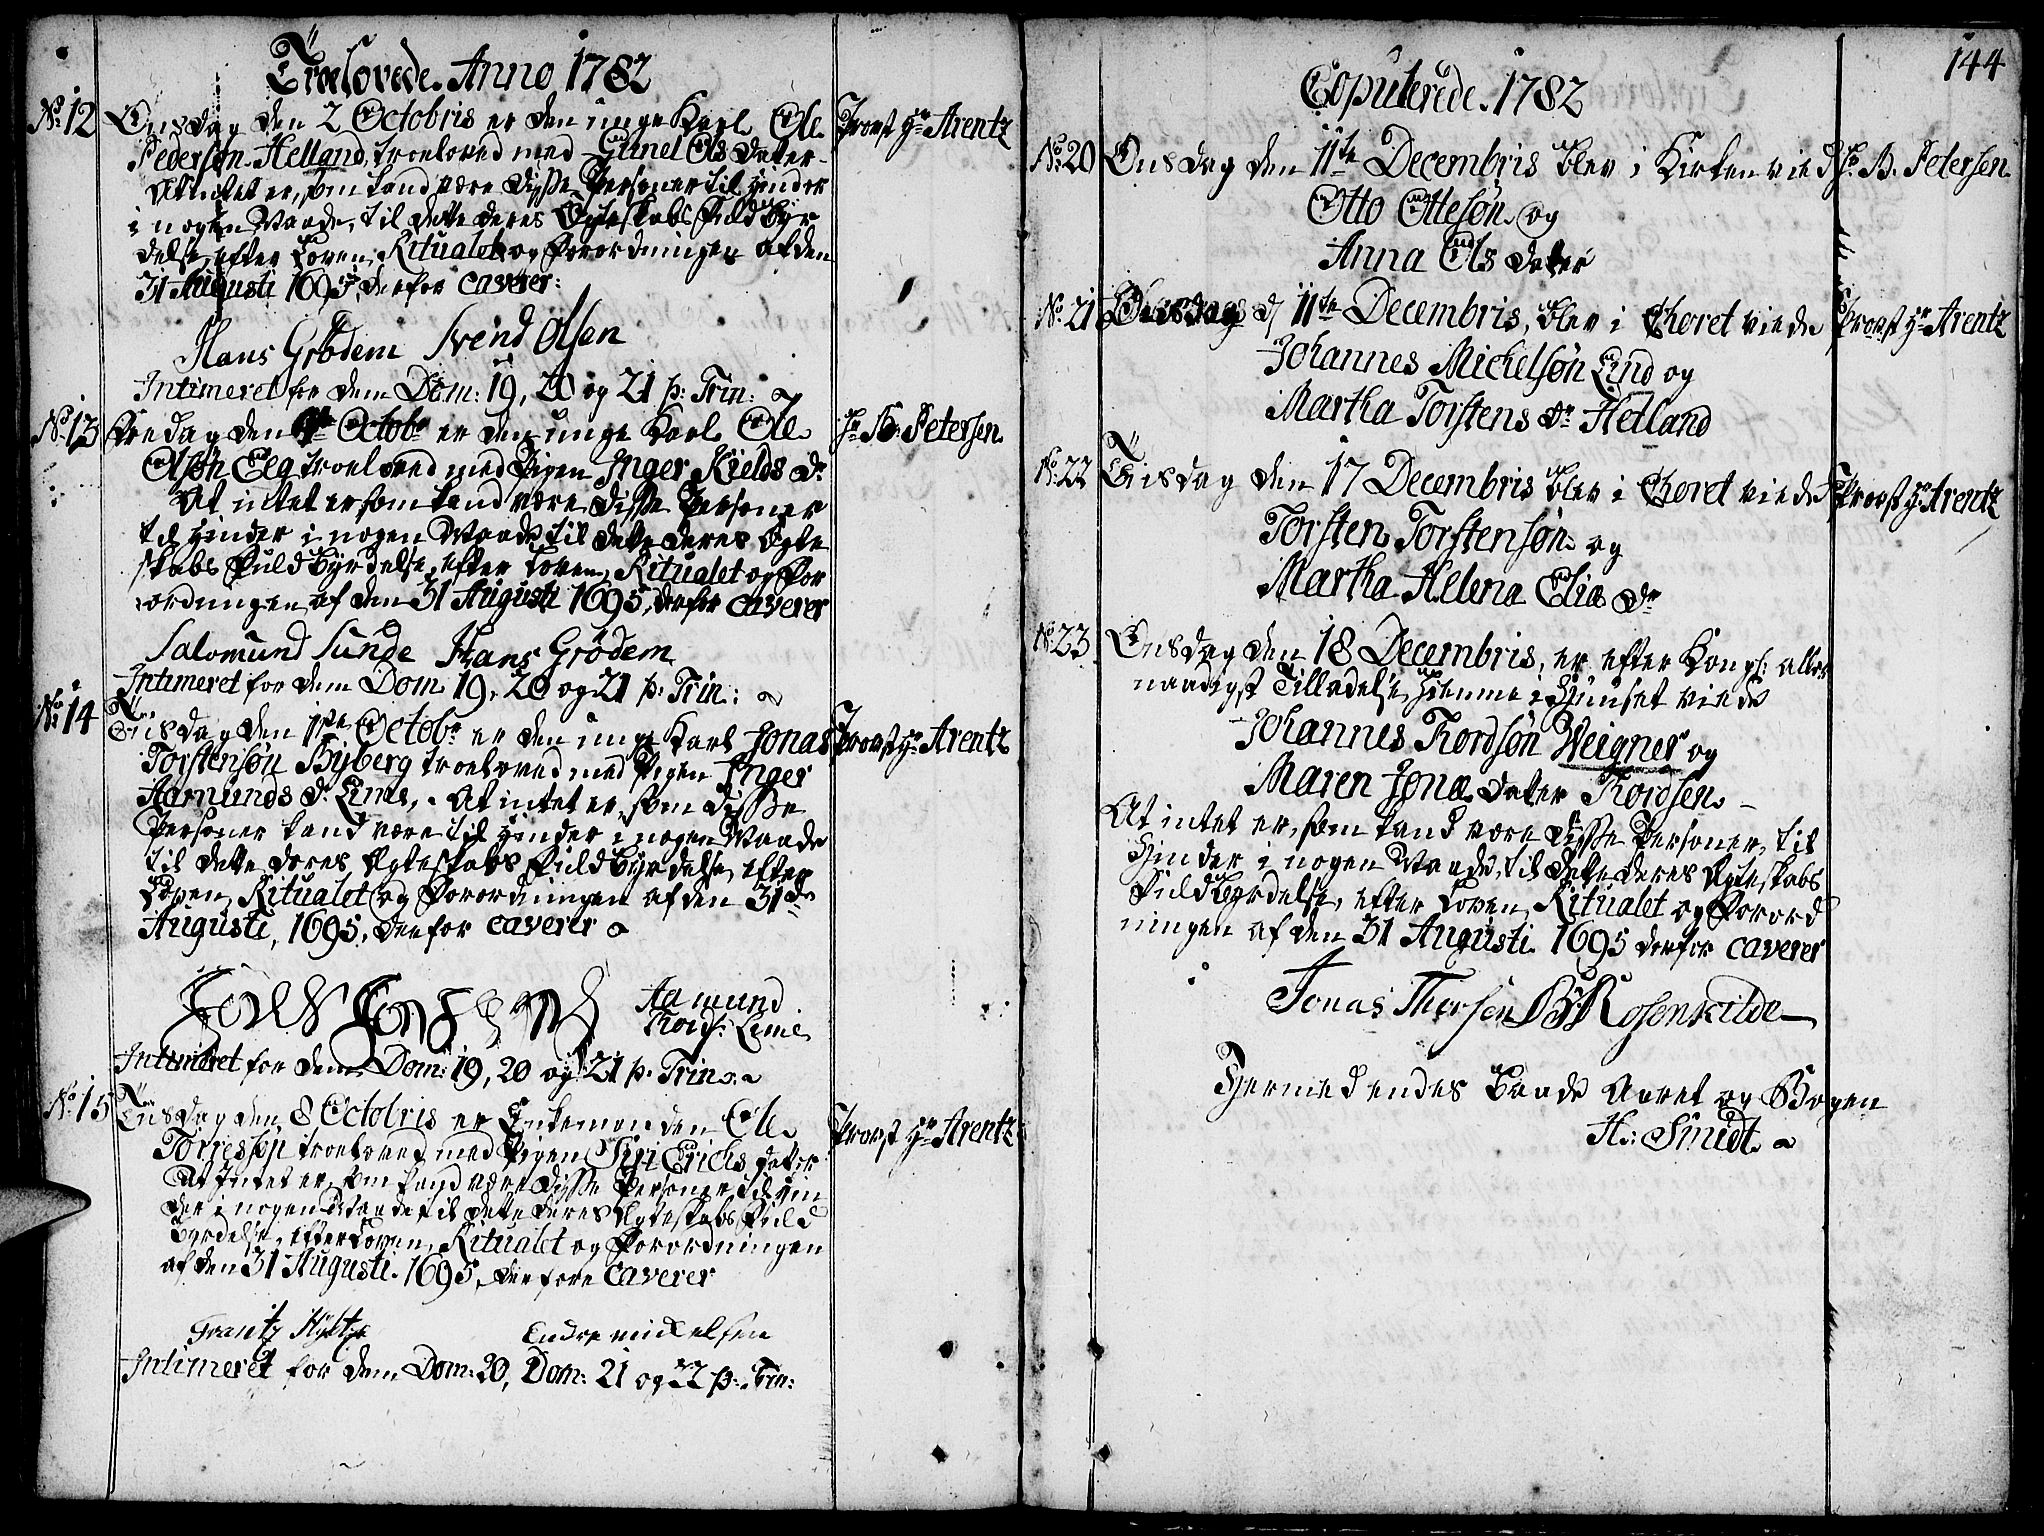 Troelovede. Anno 1782
No. 12 Onsdag den 2 Octobris er den unge Karl Ole Provst Hr. Arentz
Pedersøn Helland, troeloved med Gunel Ols Dater
At intet er, som kand være disse Personer til Hinder
i nogen Maade, til dette deres Ægteskabs Fuldbyr
delse, efter Loven, Ritualet og Forordningen af den
31 Augusti 1695, derfor caverer:
Hans Grødem Svend Olsen
Intimeret for dem Dom: 19, 20 og 21 p: Trin:
No. 13 Fredag den Octobr er den unge Karl Ole Hr. B. Petersen
Olsøn Eeg troeloved med Pigen Inger Kields Dr
At intet er som kand være disse Personer
til Hinder i nogen Maade til dette deres Ægte
skabs Fuldbyrdelse, efter Loven, Ritualet og For
ordningen af den 31 Augusti 1695, derfor caverer
Salomund Sunde Hans Grødem
Intimeret for dem Dom 19, 20 og 21 p: Trin:
No. 14 Tiisdag den 1ste Octobr er den unge Karl Jonas Provst Hr. Arentz
Torstensøn Byberg troeloved med Pigen Inger
Aamunds Dr Lime, At intet er, som disse
Personer kand være til Hinder i nogen Maade
til dette deres Ægteskabs Fuldbyrdelse, efter
Loven, Ritualet og Forordningen af den 31de
Augusti, 1695, derfor caverer
Aamund
Lime
Intimeret for dem Dom: 19, 20 og 21 p: Trin:
No. 15 Tiisdag den 8 Octobris er Enkemanden Ole Provst Hr. Arentz
Torressøn troeloved med Pigen Siri Erichs Dater
At Intet er, som kand være disse Personer til Hin
der i nogen Maade til dette deres Ægteskabs Fuld
byrdelse, efter Loven, Ritualet og Forordningen
af den 31 Augusti. 1695, derfore caverer
Frantz Endre mickelsen
Intimeret for dem Dom: 20, Dom: 21 og 22 p: Trin:
144
Copulerede. 1782
No. 20 Onsdag den 11te Decembris blev i Kirken vied Hr. B. Petersen
Otto Ottesøn og
Anna Ols Dater
No. 21 Onsdag d 11te Decembris, blev i Choret viede Provst Hr. Arentz
Johannes Michelsøn Lind og
Martha Torstens Dr Hetland
No. 22 Tiisdag den 17 Decembris blev i Choret viede Provst Hr. Arentz
Torsten Torstensøn og
Martha Helena Eliæ Dr
No. 23 Onsdag den 18 Decembris, er efter Kongl: aller
naadigst Tilladelse, Hiemme i Huuset viede
Johannes Thordsøn Weigner og
Maren Jonæ Dater Thordsen
At intet er, som kand være disse Personer, til
Hinder i nogen Maade, til dette deres Ægteskabs
Fuldbyrdelse, efter Loven, Ritualet og Forord
ningen af den 31 Augusti 1695 derfor caverer
Jonas Thorsen Rosenkilde
Hermed endes baade Aaret og Bogen
H: Smidt